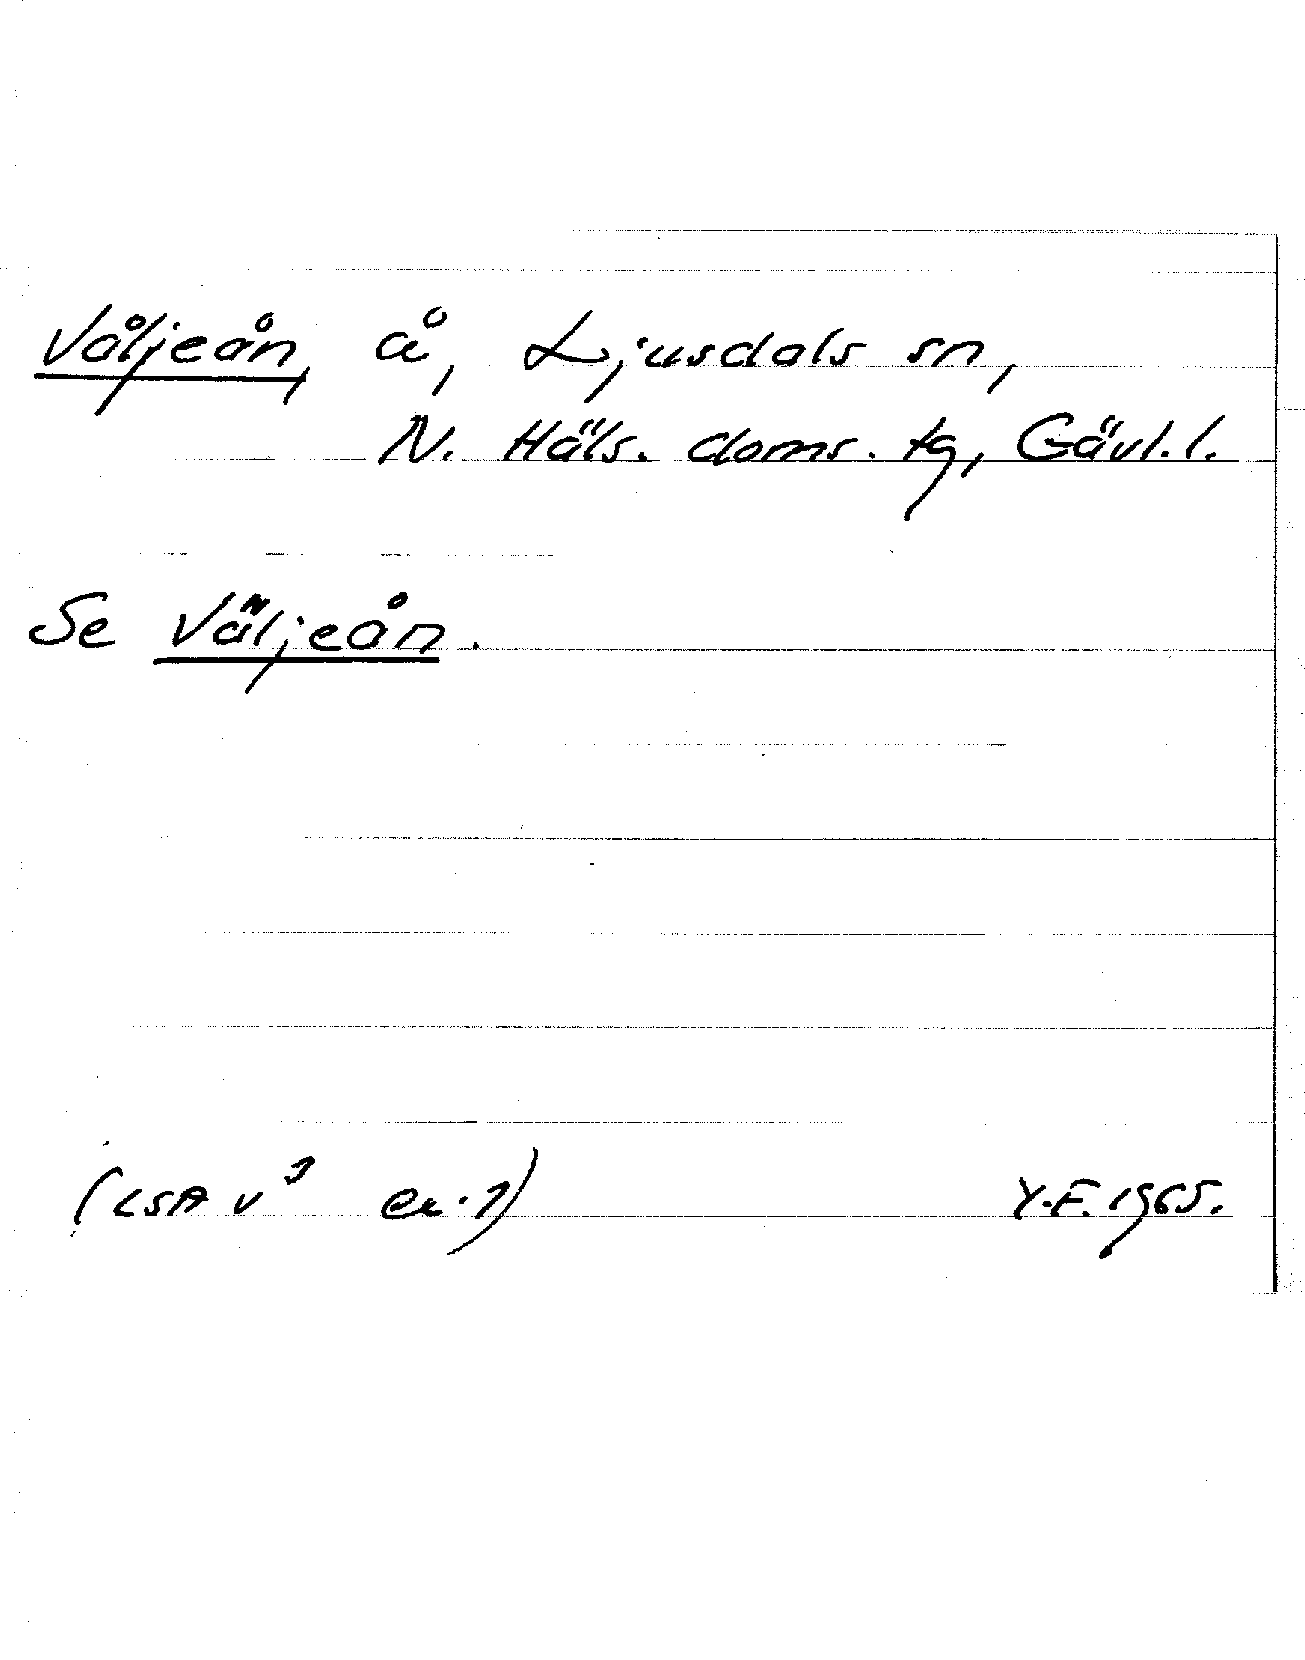 Våljeån, å, Ljusdals sn,
N. Häls. doms. tg, Gävl. l.
Se Väljeån.
(LSA v³ ex. 1) Y.F. 1965.